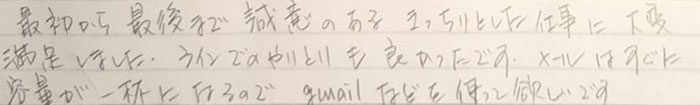 最初から最後まで誠意のあるきっちりとした仕事に大変
満足しました．ラインでのやりとりも良かったです．メールはすぐに
容量が一杯になるので gmailなどを使って欲しいです